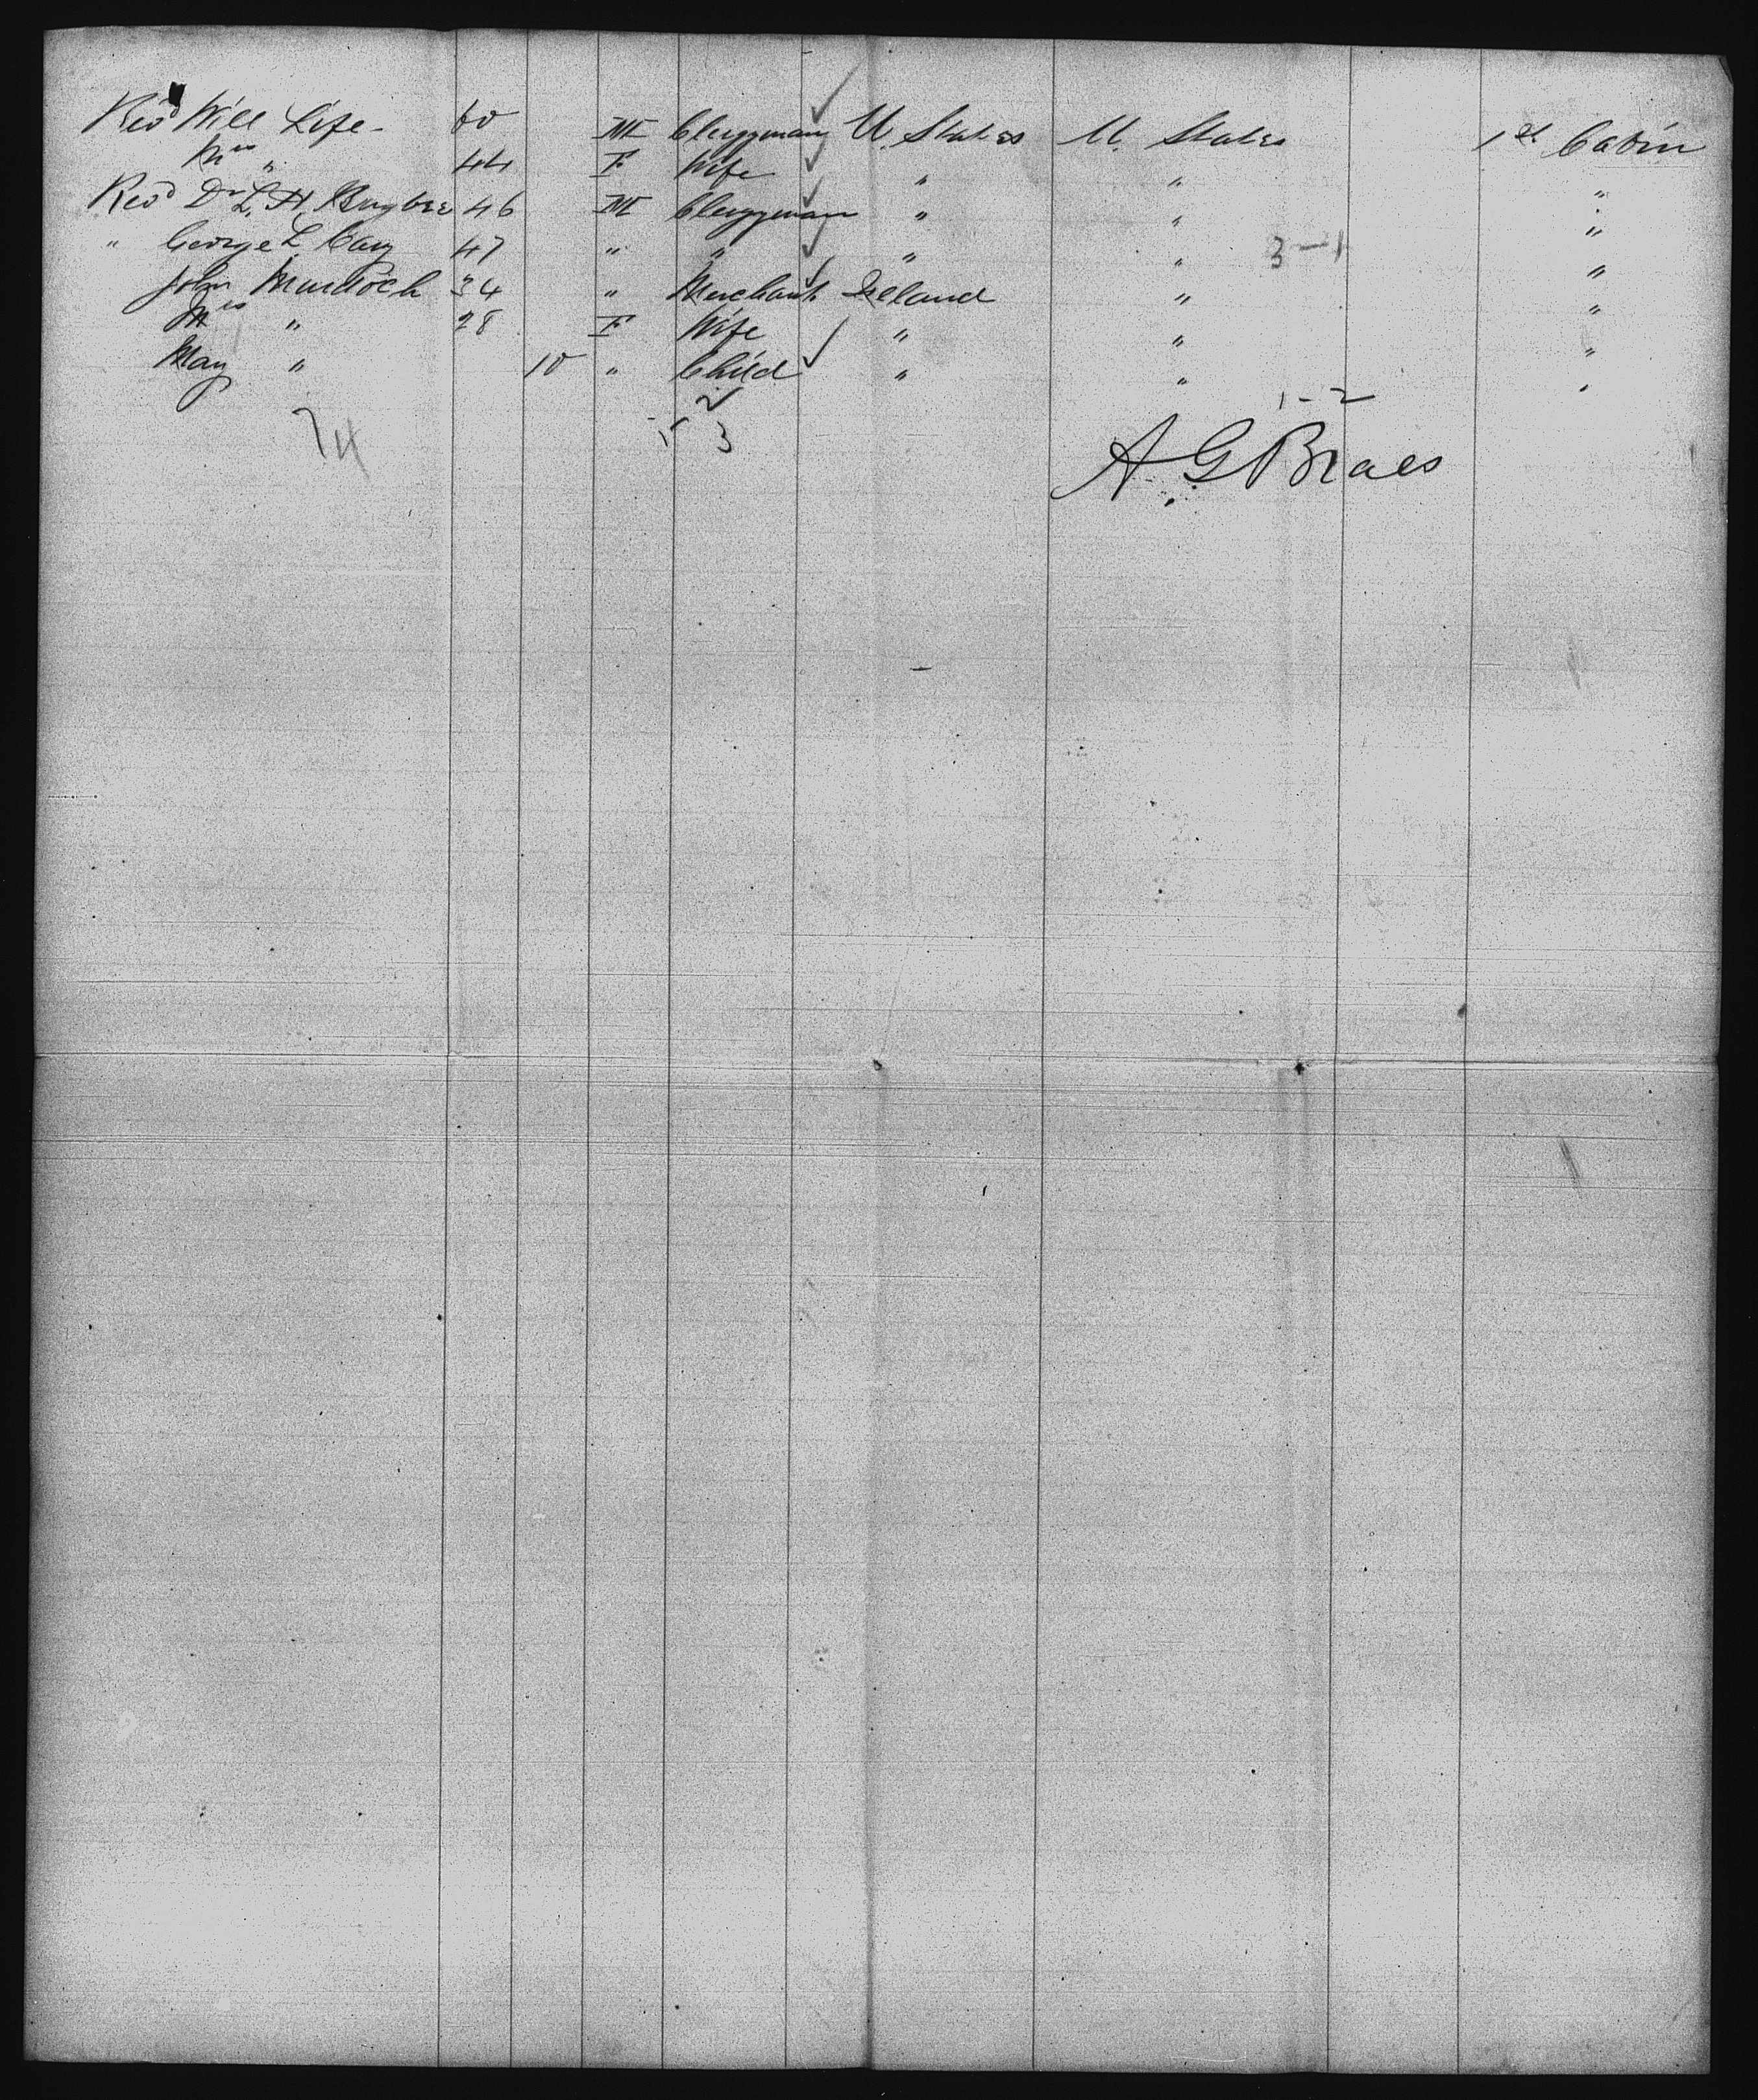 Revd Will Life - 60 M Clergyman U. States U. States 1st Cabin
Mrs " 44 F Wife " " "
Revd Dr L. H. Bugbee 46 M Clergyman " " "
" George L Cary 47 " " " " 3-1 "
John Murdoch 34 " Merchant Ireland " "
Mrs " 28 F Wife " " "
May " 10 " Child " " "
2 1-2
74 5 3
A. G. Braes